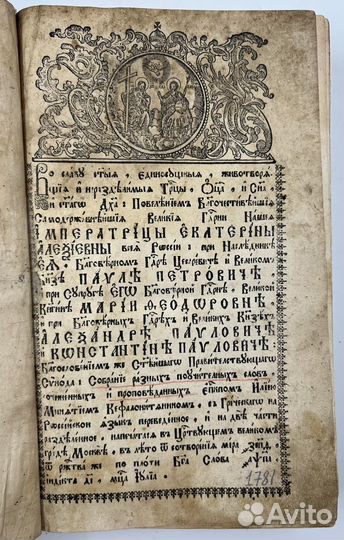 Во славу ст҃ыѧ, единосущныѧ, животворѧ-
щиѧ и нераздѣлимыѧ Трⷪ҇цы, Ѻц҃а, и Сн҃а
и ст҃агѡ Дх҃а: Повелѣнїемъ Бл҃гочестивѣйшїѧ
Самодержавнѣйшїѧ Великїѧ Гдⷭ҇рни Нашеѧ
ИМПЕРАТРИЦЫ ЕКАТЕРИНЫ
АЛЕѮІЕВНЫ всеѧ Рѡссїи: при Наслѣдникѣ
ЕѦ, Бл҃говѣрномъ Гдⷭ҇рѣ Цесаревичѣ и Великомъ
Кн҃зѣ ПАУЛѢ ПЕТРОВИЧѢ
при Супругѣ ЕГѠ Бл҃говѣрной Гдⷭ҇рнѣ, Великой
Кнѧгинѣ МАРІИ ѲЕОДѠРОВНѢ
и при Бл҃говѣрныхъ Гдⷭ҇рѣхъ и Великихъ Кн҃зѣхъ
АЛЕѮАНДРѢ ПАУЛОВИЧѢ
и КѠНСТАНТІНѢ ПАУЛОВИЧѢ:
Бл҃гословенїемъ же Ст҃ѣйшагѡ Правителствующагѡ
Сѵнода: Собранїе разныхъ поучителныхъ словъ
сочиненныхъ и проповѣданныхъ епⷭ҇кпомъ Илїею
Минѧтїемъ Кефалонитѧниномъ, съ Греческагѡ на
Россїйской языкъ переведенное, и на двѣ части
раздѣленное, напечатасѧ въ Црⷭ҇твующемъ великомъ
градѣ Москвѣ, въ лѣто ѿ сотворенїѧ мїра ҂зсп҃ѳ,
ѿ рж҃тва же по плоти Бг҃а Слова ҂аѱп҃а
індикта д҃і, мцⷭ҇а Іулїа.
1781
Avito